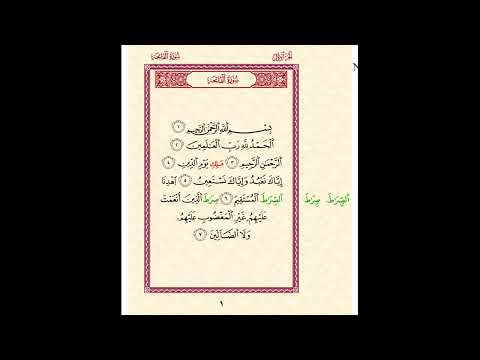 الجزء الأول سُورَةُ الفَاتِحَةِ
سُورَةُ الفَاتِحَةِ
بِسْمِ اللَّهِ الرَّحْمَٰنِ الرَّحِيمِ ١
الْحَمْدُ لِلَّهِ رَبِّ الْعَٰلَمِينَ ٢
الرَّحْمَٰنِ الرَّحِيمِ ٣ مَلِكِ يَوْمِ الدِّينِ ٤
إِيَّاكَ نَعْبُدُ وَإِيَّاكَ نَسْتَعِينُ ٥ اهْدِنَا
الصِّرَٰطَ الْمُسْتَقِيمَ ٦ صِرَٰطَ الَّذِينَ أَنْعَمْتَ
الصِّرَٰطَ صِرَٰطَ
عَلَيْهِمْ غَيْرِ الْمَغْضُوبِ عَلَيْهِمْ
وَلَا الضَّالِّينَ ٧
١